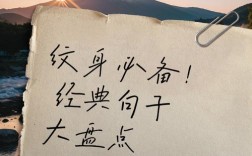 纹身必备！
经典句子
大盘点